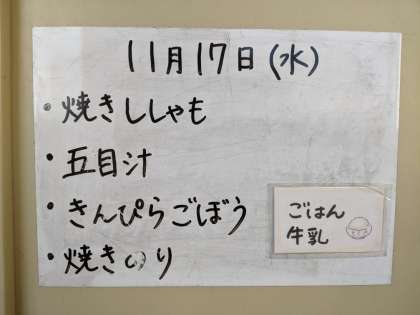 11月17日(水)
・焼きししゃも
・五目汁
・きんぴらごぼう
・焼きのり
ごはん
牛乳